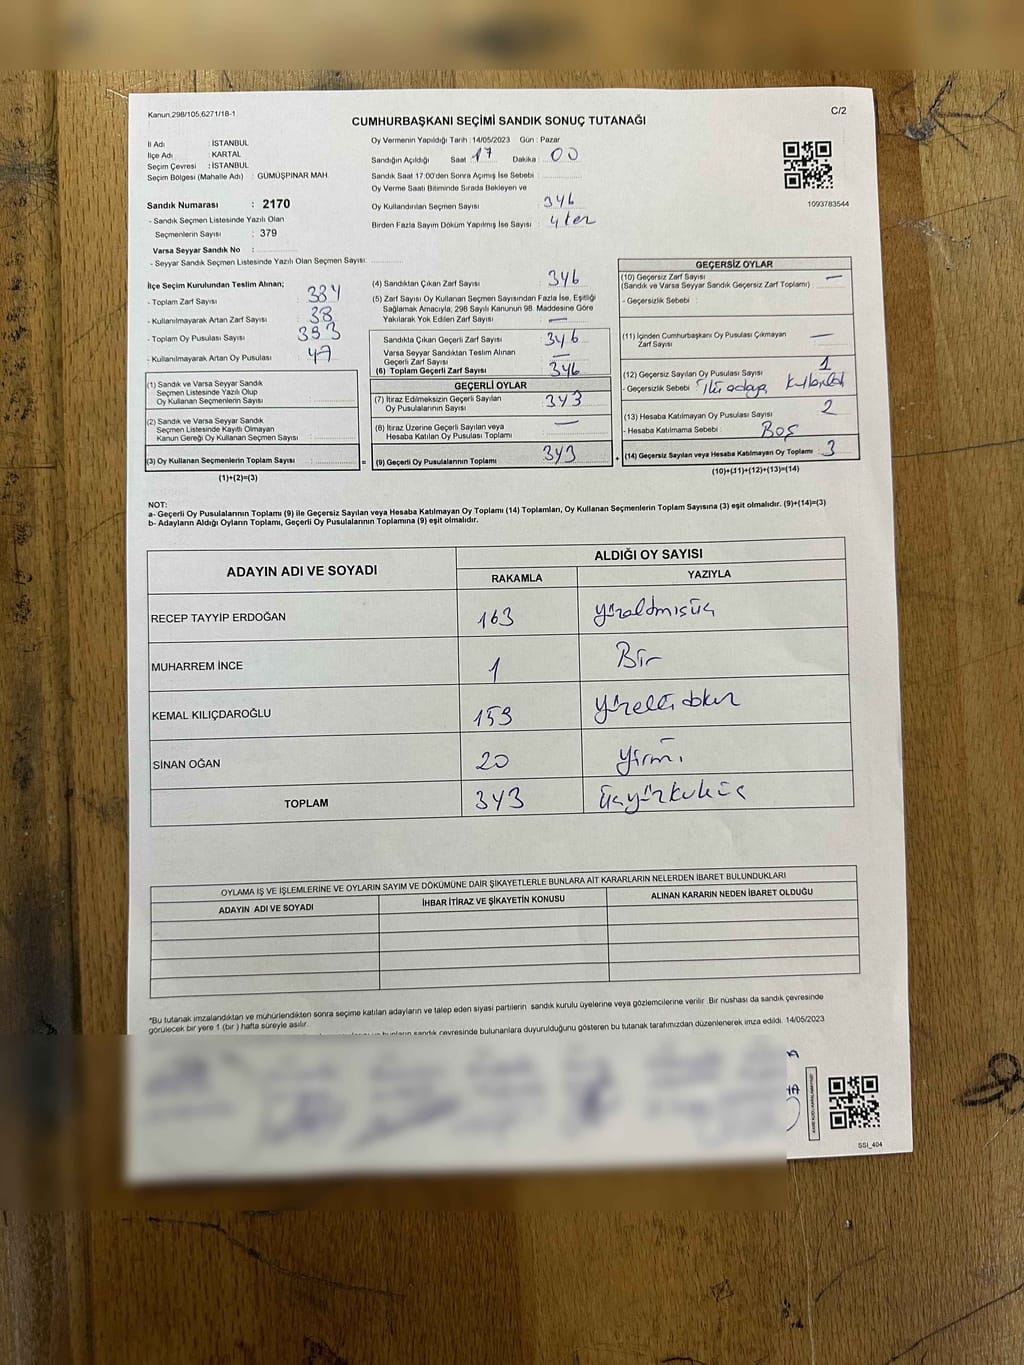 Kanun.298/105,6271/18-1
C/2
CUMHURBAŞKANI SEÇİMİ SANDIK SONUÇ TUTANAĞI
İl Adı : İSTANBUL
İlçe Adı : KARTAL
Seçim Çevresi : İSTANBUL
Seçim Bölgesi (Mahalle Adı) : GÜMÜŞPINAR MAH.
Sandık Numarası : 2170
- Sandık Seçmen Listesinde Yazılı Olan
Seçmenlerin Sayısı : 379
Varsa Seyyar Sandık No :
- Seyyar Sandık Seçmen Listesinde Yazılı Olan Seçmen Sayısı:
Oy Vermenin Yapıldığı Tarih : 14/05/2023 Gün : Pazar
Sandığın Açıldığı Saat 17 Dakika : 00
Sandık Saat 17:00'den Sonra Açımış İse Sebebi :
Oy Verme Saati Bitiminde Sırada Bekleyen ve
Oy Kullandırılan Seçmen Sayısı : 346
Birden Fazla Sayım Döküm Yapılmış İse Sayısı : 4 ter
1093783544
İlçe Seçim Kurulundan Teslim Alınan;
- Toplam Zarf Sayısı : 384
- Kullanılmayarak Artan Zarf Sayısı : 38
- Toplam Oy Pusulası Sayısı : 393
- Kullanılmayarak Artan Oy Pusulası : 47
(1) Sandık ve Varsa Seyyar Sandık
Seçmen Listesinde Yazılı Olup
Oy Kullanan Seçmenlerin Sayısı :
(2) Sandık ve Varsa Seyyar Sandık
Seçmen Listesinde Kayıtlı Olmayan
Kanun Gereği Oy Kullanan Seçmen Sayısı :
(3) Oy Kullanan Seçmenlerin Toplam Sayısı :
(1)+(2)=(3)
=
(4) Sandıktan Çıkan Zarf Sayısı : 346
(5) Zarf Sayısı Oy Kullanan Seçmen Sayısından Fazla İse, Eşitliği
Sağlamak Amacıyla, 298 Sayılı Kanunun 98. Maddesine Göre
Yakılarak Yok Edilen Zarf Sayısı : —
Sandıkta Çıkan Geçerli Zarf Sayısı : 346
Varsa Seyyar Sandıktan Teslim Alınan
Geçerli Zarf Sayısı : —
(6) Toplam Geçerli Zarf Sayısı : 346
GEÇERLİ OYLAR
(7) İtiraz Edilmeksizin Geçerli Sayılan
Oy Pusulalarının Sayısı : 343
(8) İtiraz Üzerine Geçerli Sayılan veya
Hesaba Katılan Oy Pusulası Toplamı : —
(9) Geçerli Oy Pusulalarının Toplamı : 343
+
GEÇERSİZ OYLAR
(10) Geçersiz Zarf Sayısı : —
(Sandık ve Varsa Seyyar Sandık Geçersiz Zarf Toplamı)
- Geçersizlik Sebebi :
(11) İçinden Cumhurbaşkanı Oy Pusulası Çıkmayan
Zarf Sayısı : —
(12) Geçersiz Sayılan Oy Pusulası Sayısı : 1
- Geçersizlik Sebebi : İki adaya
(13) Hesaba Katılmayan Oy Pusulası Sayısı : 2
- Hesaba Katılmama Sebebi : Boş
(14) Geçersiz Sayılan veya Hesaba Katılmayan Oy Toplamı : 3
(10)+(11)+(12)+(13)=(14)
NOT:
a- Geçerli Oy Pusulalarının Toplamı (9) ile Geçersiz Sayılan veya Hesaba Katılmayan Oy Toplamı (14) Toplamları, Oy Kullanan Seçmenlerin Toplam Sayısına (3) eşit olmalıdır. (9)+(14)=(3)
b- Adayların Aldığı Oyların Toplamı, Geçerli Oy Pusulalarının Toplamına (9) eşit olmalıdır.
ADAYIN ADI VE SOYADI
ALDIĞI OY SAYISI
RAKAMLA YAZIYLA
RECEP TAYYİP ERDOĞAN 163 yüzaltmışüç
MUHARREM İNCE 1 Bir
KEMAL KILIÇDAROĞLU 159 yüzellidokuz
SİNAN OĞAN 20 yirmi
TOPLAM 343 üçyüzkırküç
OYLAMA İŞ VE İŞLEMLERİNE VE OYLARIN SAYIM VE DÖKÜMÜNE DAİR ŞİKAYETLERLE BUNLARA AİT KARARLARIN NELERDEN İBARET BULUNDUKLARI
ADAYIN ADI VE SOYADI İHBAR İTİRAZ VE ŞİKAYETİN KONUSU ALINAN KARARIN NEDEN İBARET OLDUĞU
*Bu tutanak imzalandıktan ve mühürlendikten sonra seçime katılan adayların ve talep eden siyasi partilerin sandık kurulu üyelerine veya gözlemcilerine verilir. Bir nüshası da sandık çevresinde
görülecek bir yere 1 (bir ) hafta süreyle asılır.
sandık çevresinde bulunanlara duyurulduğunu gösteren bu tutanak tarafımızdan düzenlenerek imza edildi. 14/05/2023
SSI_404